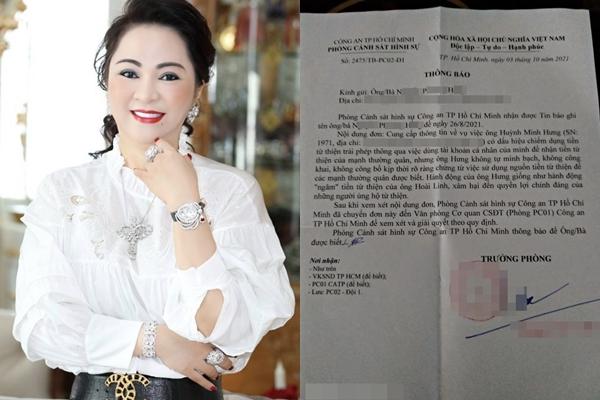 CÔNG AN TP HỒ CHÍ MINH
PHÒNG CẢNH SÁT HÌNH SỰ
Số: 2475/TB-PC02-Đ1
CỘNG HÒA XÃ HỘI CHỦ NGHĨA VIỆT NAM
Độc lập - Tự do - Hạnh phúc
TP Hồ Chí Minh, ngày 03 tháng 10 năm 2021
THÔNG BÁO
Kính gửi: Ông/Bà N
Địa chỉ:
Phòng Cảnh sát hình sự Công an TP Hồ Chí Minh nhận được Tin báo ghi
tên ông/bà N P H đề ngày 26/8/2021.
Nội dung đơn: Cung cấp thông tin về vụ việc ông Huỳnh Minh Hưng (SN:
1971, địa chỉ: có dấu hiệu chiếm dụng tiền
từ thiện trái phép thông qua việc dùng tài khoản cá nhân của mình để nhận tiền từ
thiện của mạnh thường quân, nhưng ông Hưng không tự minh bạch, không công
khai, không công bố kịp thời rõ ràng chứng từ việc sử dụng nguồn tiền từ thiện để
các mạnh thường quân được biết. Hành động của ông Hưng giống như hành động
"ngâm" tiền từ thiện của ông Hoài Linh, xâm hại đến quyền lợi chính đáng của
những người ủng hộ từ thiện.
Sau khi xem xét nội dung đơn, Phòng Cảnh sát hình sự Công an TP Hồ Chí
Minh đã chuyển đơn này đến Văn phòng Cơ quan CSĐT (Phòng PC01) Công an
TP Hồ Chí Minh để xem xét và giải quyết theo quy định.
Phòng Cảnh sát hình sự Công an TP Hồ Chí Minh thông báo để Ông/Bà
được biết./.
Nơi nhận:
- Như trên
- VKSND TP HCM (để biết);
- PC01 CATP (để biết);
- Lưu: PC02 - Đội 1.
TRƯỞNG PHÒNG